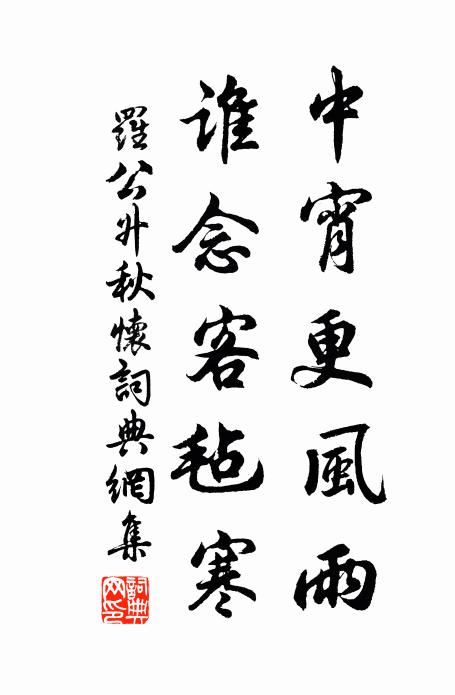 中宵更風雨
誰念客毡寒
羅公升秋懷詞典網集
詞典網印